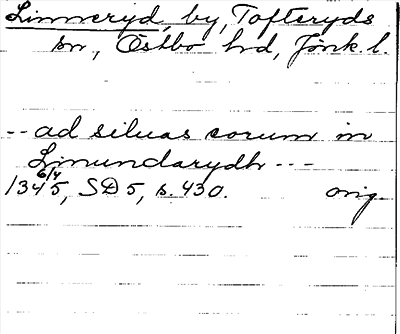 Linneryd, by, Tofteryds
sn, Östbo hd, Jönk. l.
-- ad siluas eorum in
Linundarydh ---
1345 6/4, SD 5, s. 430. orig.